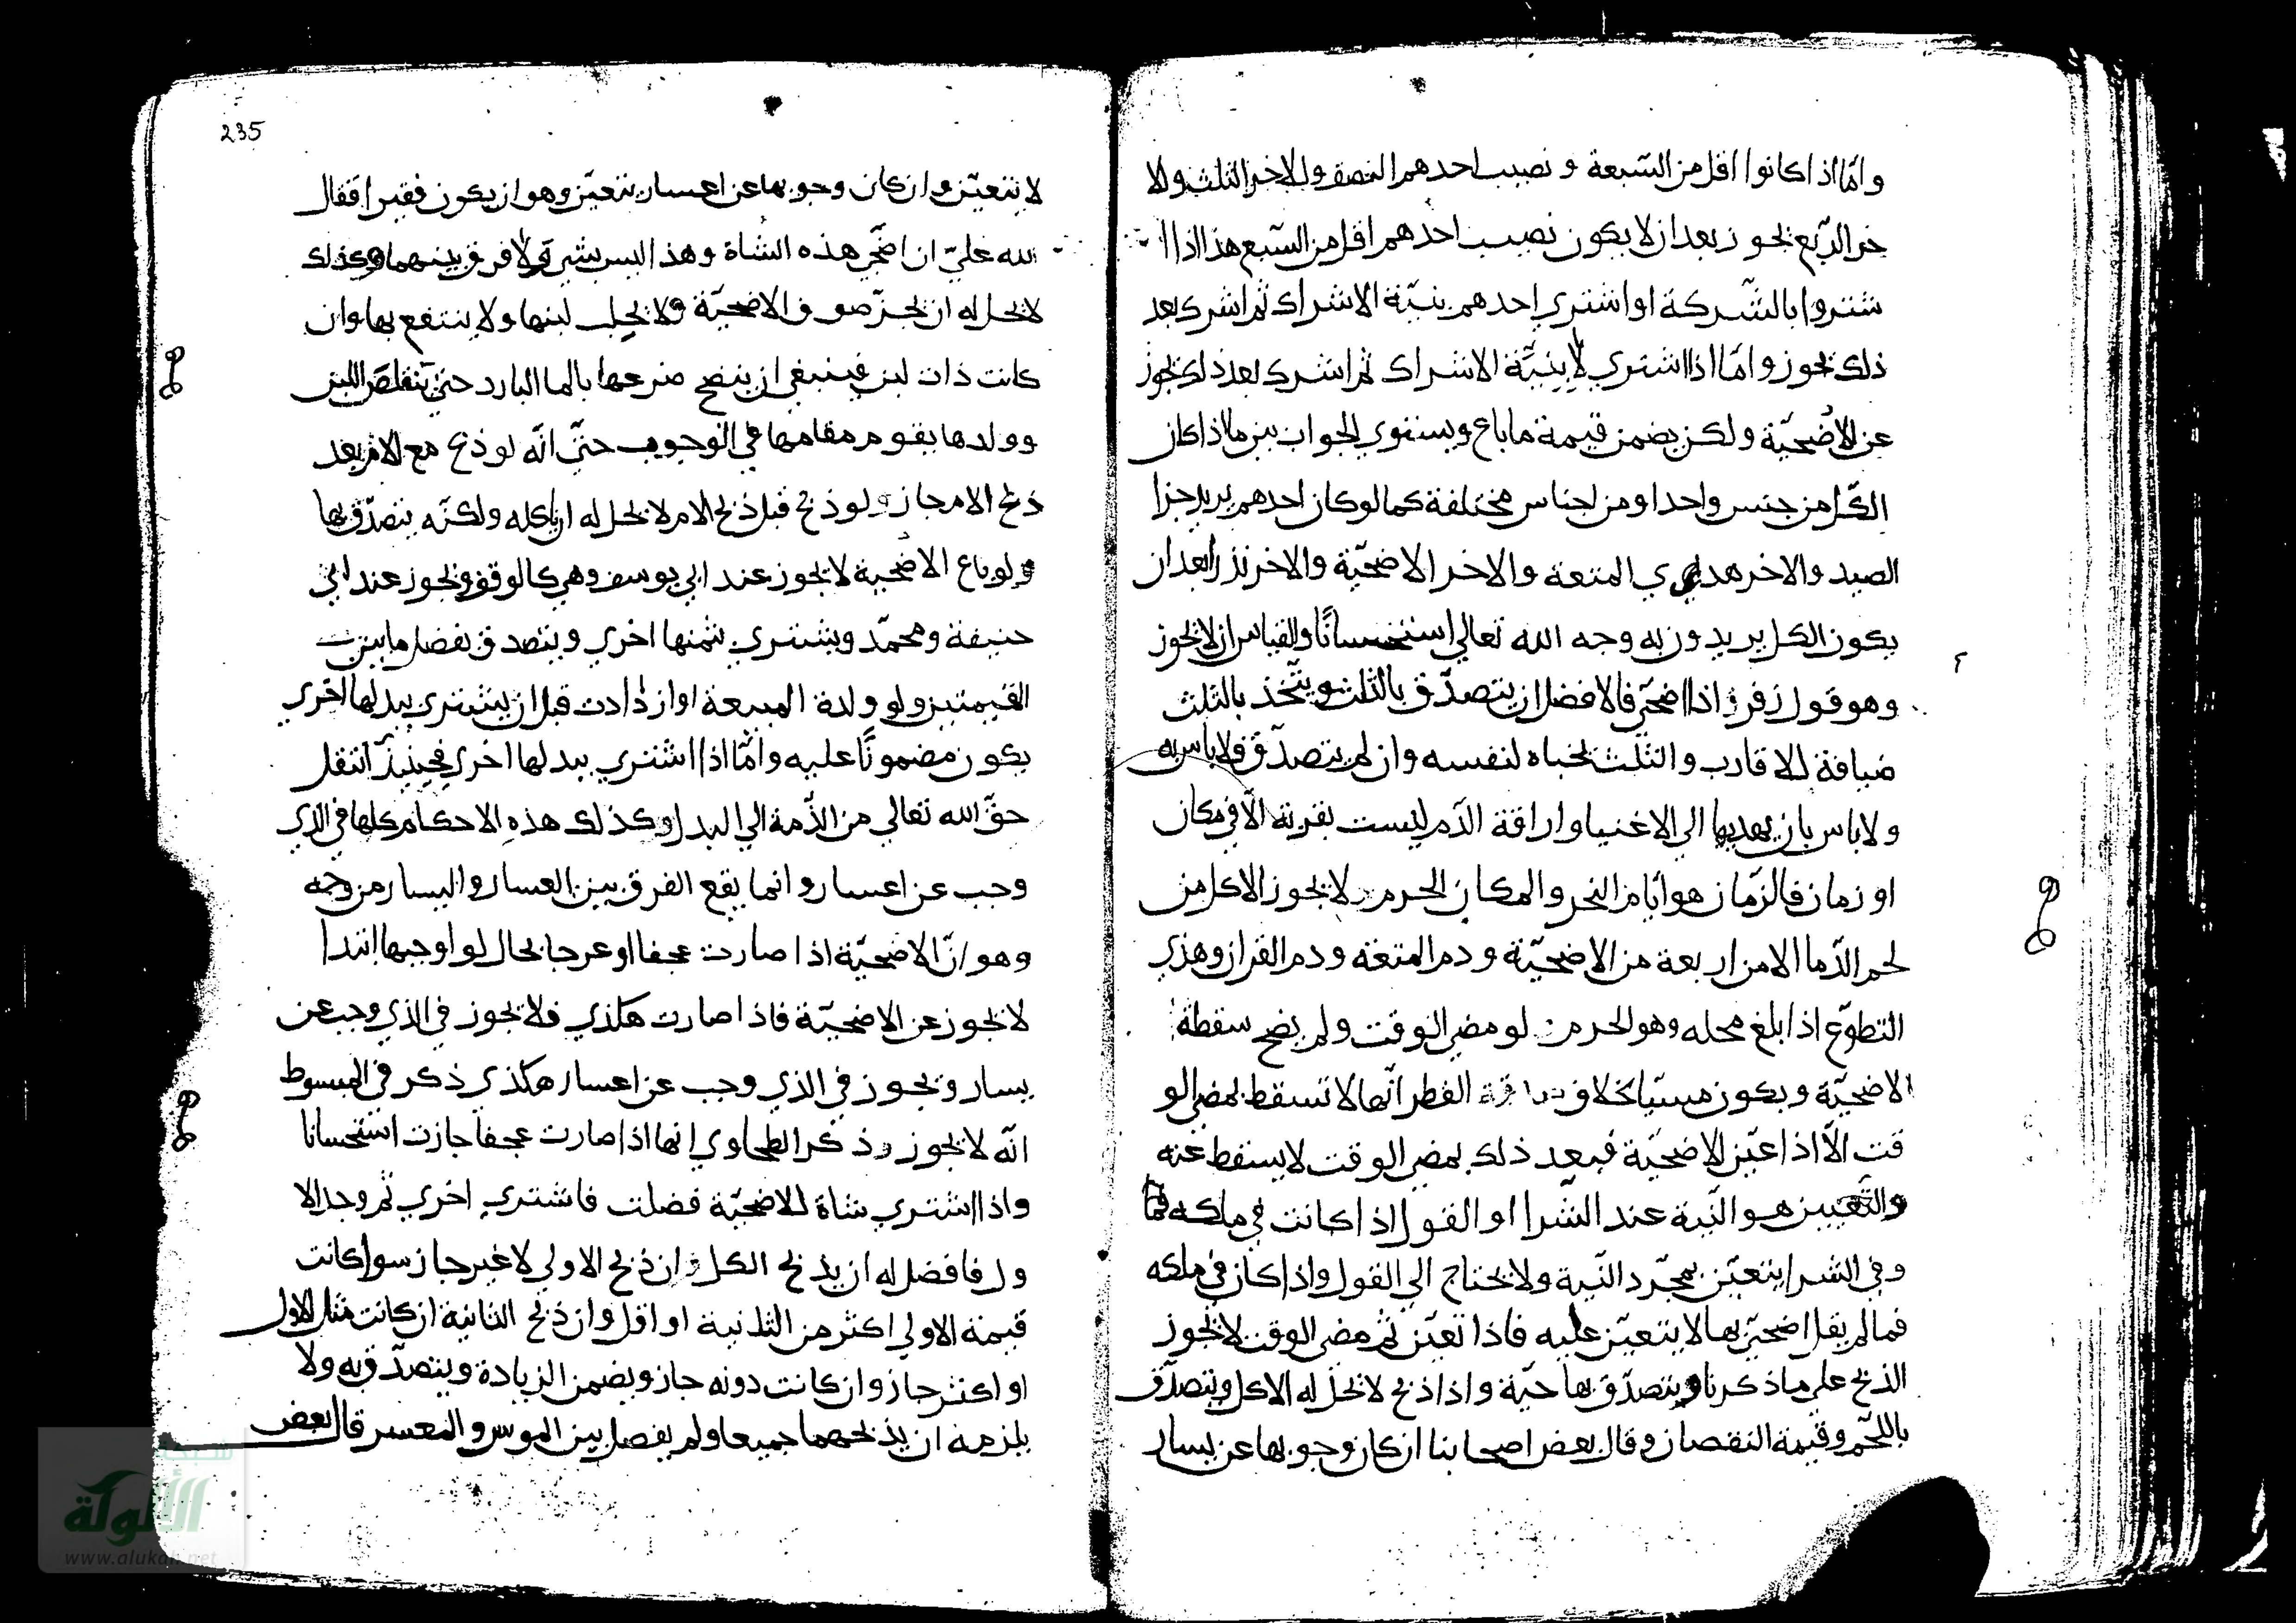 واما اذا كانوا اقل من السبعة و نصيب احدهم النصف وللاخر الثلث ولا
خر الربع يجوز بعد ان لا يكون نصيب احدهم اقل من السبع هذا اذا ا
شتروا بالشركة او اشتري احدهم بنية الاشراك ثم اشرك بعد
ذلك يجوز واما اذا اشتري لا بنية الاشراك ثم اشرك بعد ذلك يجوز
عن الاضحية ولكن يضمن قيمة ما باع ويستوي الجواب بين ما اذا كان
الكل من جنس واحد او من اجناس مختلفة كما لو كان احدهم يريد جزا
الصيد والاخر هدي المتعة والاخر الاضحية والاخر نذرا بعد ان
يكون الكل يريدون به وجه الله تعالي استحسانًا والقياس ان لا يجوز
وهو قول زفر و اذا اضحي فالافضل ان يتصدق بالثلث ويتخذ بالثلث
ضيافة للاقارب والثلث يخباه لنفسه وان لم يتصدق فلا باس به
ولا باس بان يهديها الي الاغنيا واراقة الدم ليست بقربة الا في مكان
او زمان فالزمان هو ايام النحر والمكان الحرم و لا يجوز الاكل من
لحم الدما الا من اربعة من الاضحية ودم المتعة ودم القران وهدي
التطوع اذا بلغ محله وهو الحرم و لو مضي الوقت ولم يضح سقطة
الاضحية ويكون مسيا بخلاف الفطر انها لا تسقط بمضي الو
قت الا اذا عين الاضحية فبعد ذلك بمضي الوقت لا يسقط عنه
والتعيين هو النية عند الشرا او القول اذا كانت في ملكه
وفي الشرا يتعين بمجرد النية ولا يحتاج الي القول واذا كان في ملكه
فما لم يقل اضحي بها لا يتعين عليه فاذا تعين ثم مضي الوقت لا يجوز
الذبح علي ما ذكرنا ويتصدق بها حية واذا ذبح لا يحل له الاكل ويتصدق
باللحم وقيمة النقصان وقال بعض اصحابنا ان كان وجوبها عن يسار
235
لا يتعين وان كان وجوبها عن اعسار يتعين وهو ان يكون فقيرا فقال
لله علي ان اضحي هذه الشاة وهذا ليس بشي و لا فرق بينهما وكذلك
لا يحل له ان يجز صوف الاضحية ولا يحلب لبنها ولا ينتفع بها وان
كانت ذات لبن فينبغي ان ينضح ضرعها بالما البارد حتي يتقلص اللبن
وولدها يقوم مقامها في الوجوب حتي انه لو ذبح مع الام بعد
ذبح الام جاز ولو ذبح قبل ذبح الام لا يحل له ان ياكله ولكنه يتصدق بها
ولو باع الاضحية لا يجوز عند ابي يوسف وهي كالوقف ويجوز عند ابي
حنيفة ومحمد ويشتري بثمنها اخري ويتصدق بفضل ما بين
القيمتين ولو ولدة المبيعة او ازدادت قبل ان يشتري ببدلها اخري
يكون مضمونًا عليه واما اذا اشتري ببدلها اخري فحينئذ انتقل
حق الله تعالي من الذمة الي البدل وكذلك هذه الاحكام كلها في الذي
وجب عن اعسار وانما يقع الفرق بين العسار واليسار من وجه
وهو ان الاضحية اذا صارت عجفا او عرجا بحال لو اوجبها ابتدا
لا يجوز عن الاضحية فاذا صارت هكذي فلا يجوز في الذي وجب عن
يسار ويجوز في الذي وجب عن اعسار هكذي ذكر في المبسوط
انه لا يجوز وذكر الطحاوي انها اذا صارت عجفا جازت استحسانا
واذا اشتري شاة للاضحية فضلت فاشتري اخري ثم وجد الا
ول فافضل له ان يذبح الكل و ان ذبح الاولي لا غير جاز سوا كانت
قيمة الاولي اكثر من الثانية او اقل وان ذبح الثانية ان كانت مثل الاول
او اكثر جاز وان كانت دونه جاز ويضمن الزيادة ويتصدق به ولا
يلزمه ان يذبحهما جميعا ولم يفصل بين الموسر والمعسر قال بعض
شبكة
الألوكة
www.alukah.net